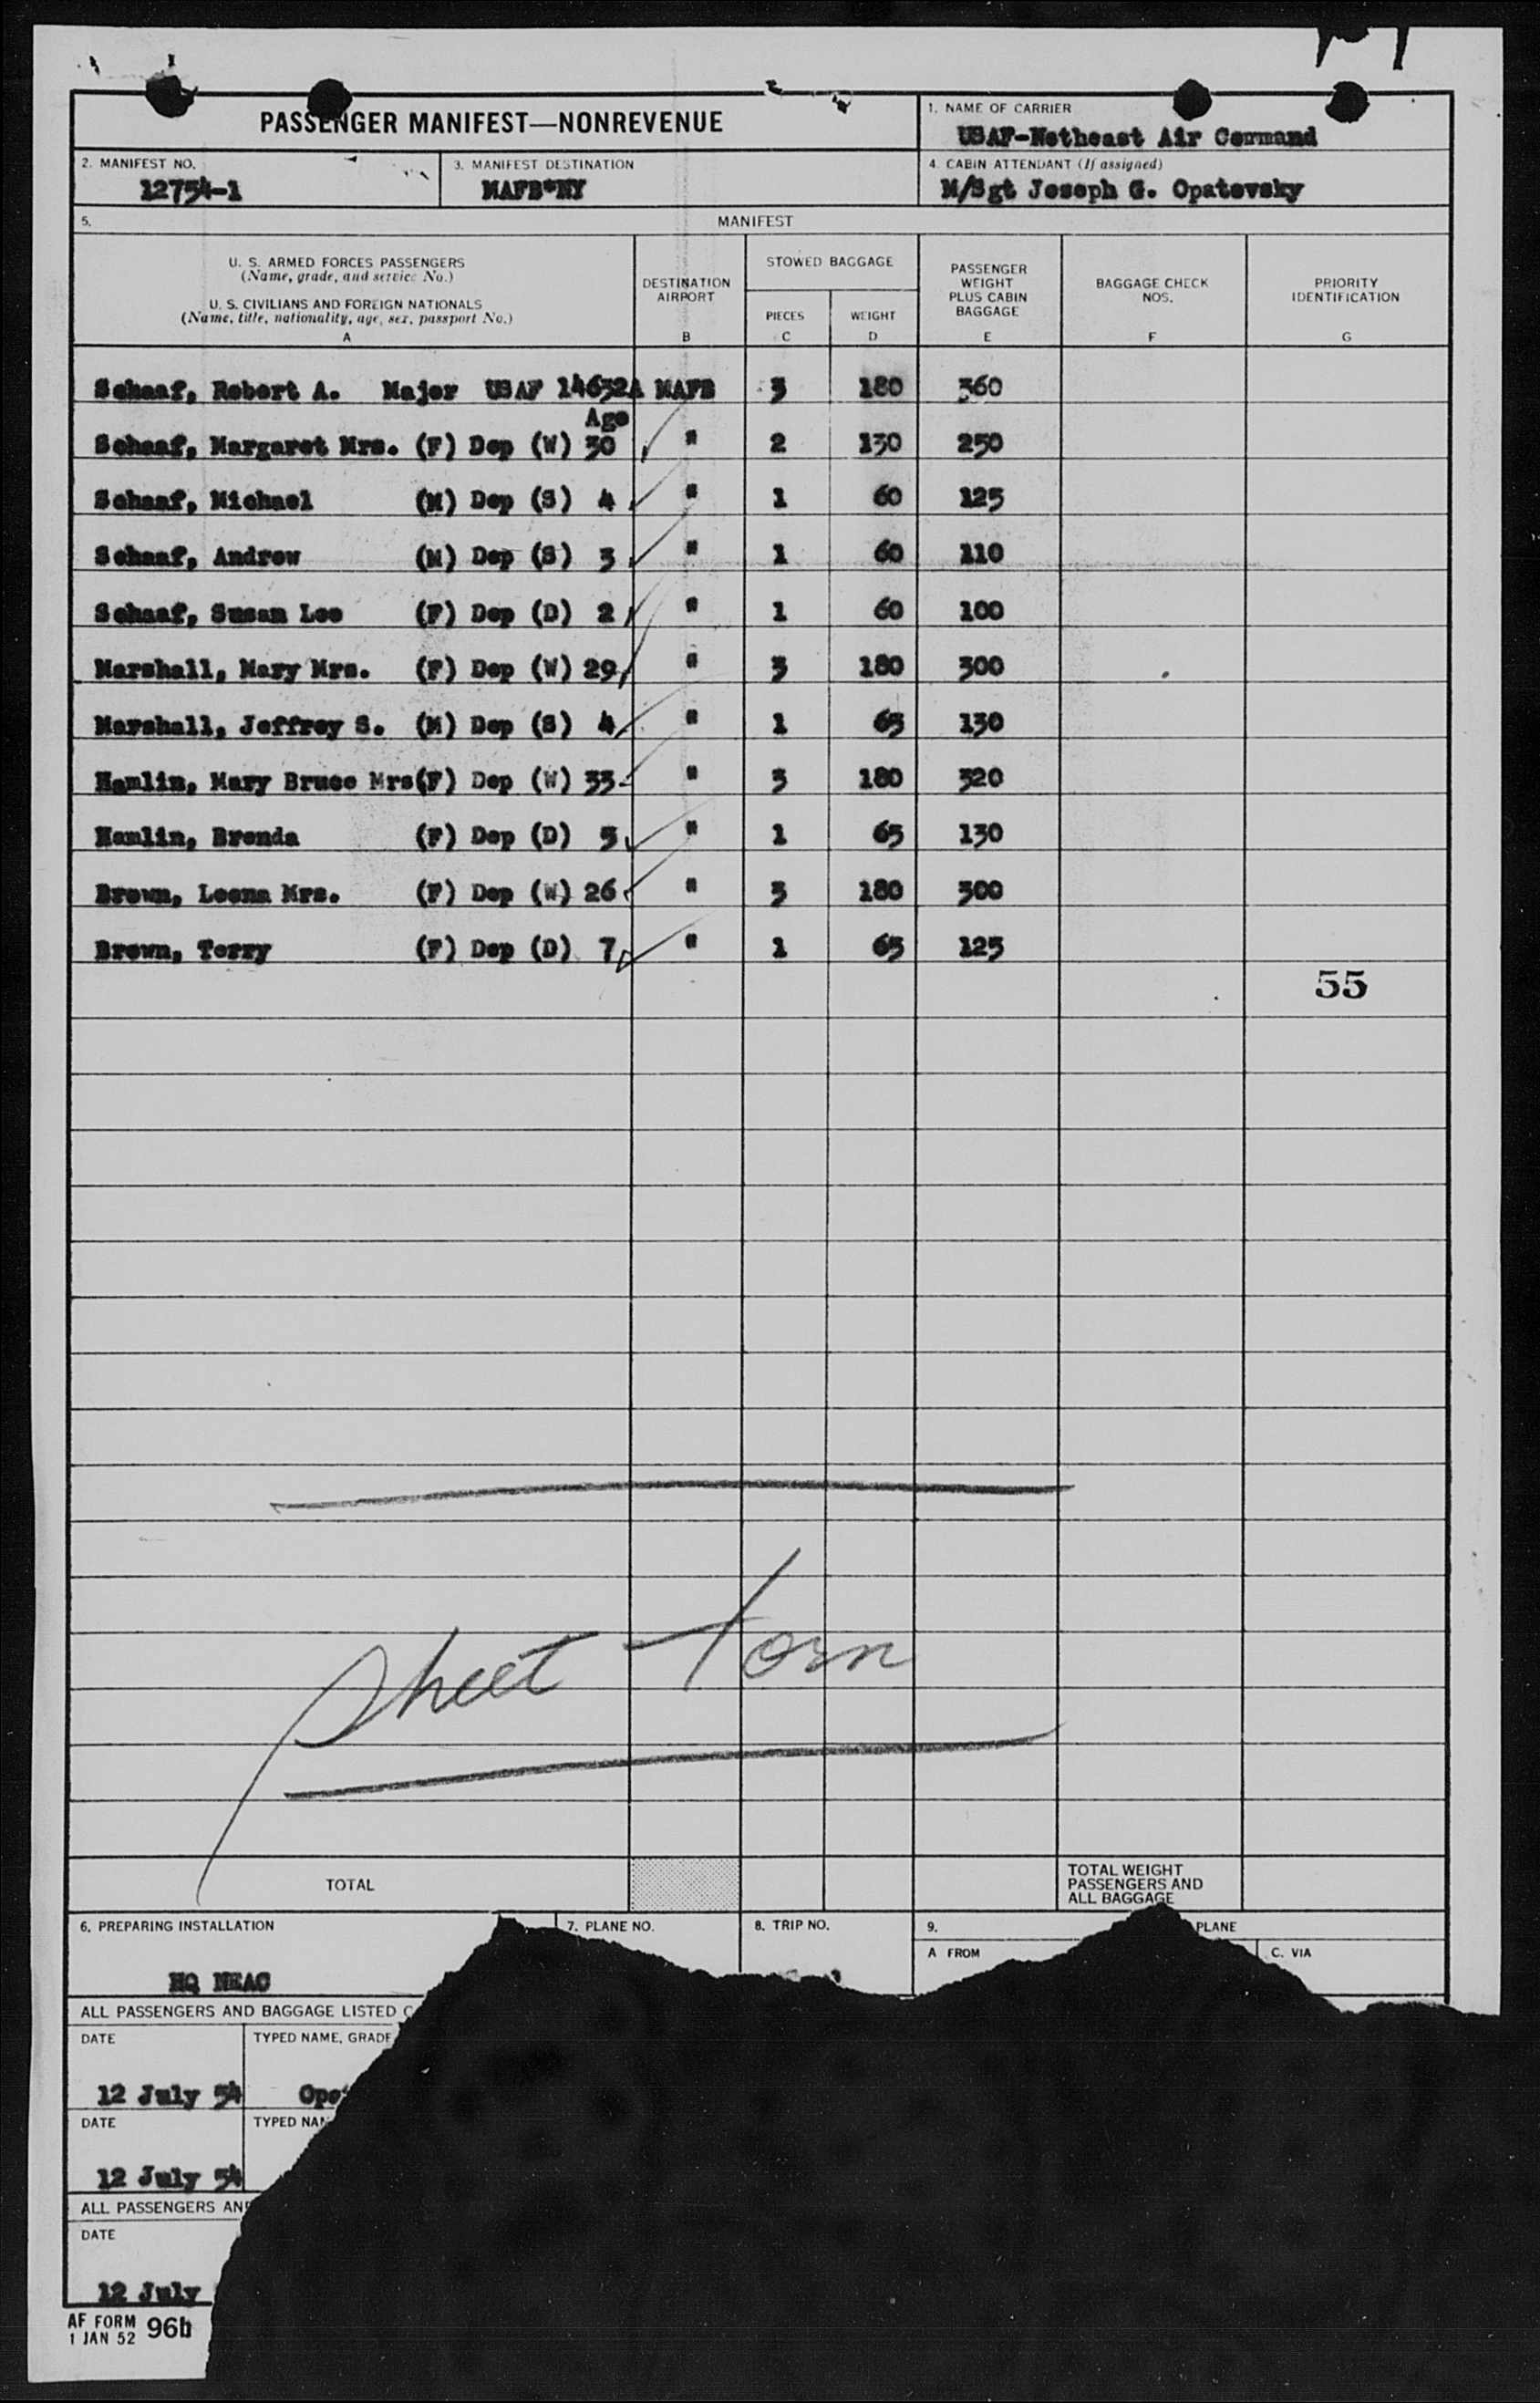 PASSENGER MANIFEST—NONREVENUE
1. NAME OF CARRIER
USAF-Netheast Air Command
2. MANIFEST NO.
12754-1
3. MANIFEST DESTINATION
MAFB*NY
4. CABIN ATTENDANT (If assigned)
M/Sgt Joseph G. Opatovsky
5. MANIFEST
U. S. ARMED FORCES PASSENGERS
(Name, grade, and service No.)
U. S. CIVILIANS AND FOREIGN NATIONALS
(Name, title, nationality, age, sex, passport No.)
A
DESTINATION
AIRPORT
B
STOWED BAGGAGE
PIECES
C
WEIGHT
D
PASSENGER
WEIGHT
PLUS CABIN
BAGGAGE
E
BAGGAGE CHECK
NOS.
F
PRIORITY
IDENTIFICATION
G
Schaaf, Robert A. Major USAF 14632A MAFB 3 180 360
Age
Schaaf, Margaret Mrs. (F) Dep (W) 30 " 2 130 250
Schaaf, Michael (M) Dep (S) 4 " 1 60 125
Schaaf, Andrew (M) Dep (S) 3 " 1 60 110
Schaaf, Susan Lee (F) Dep (D) 2 " 1 60 100
Marshall, Mary Mrs. (F) Dep (W) 29 " 3 180 300
Marshall, Jeffrey S. (M) Dep (S) 4 " 1 65 130
Hamlin, Mary Bruce Mrs(F) Dep (W) 33 " 3 180 320
Hamlin, Brenda (F) Dep (D) 5 " 1 65 130
Brown, Leena Mrs. (F) Dep (W) 26 " 3 180 300
Brown, Terry (F) Dep (D) 7 " 1 65 125
55
Sheet torn
TOTAL
TOTAL WEIGHT
PASSENGERS AND
ALL BAGGAGE
6. PREPARING INSTALLATION
HQ NEAC
7. PLANE NO.
8. TRIP NO.
9.
PLANE
A FROM
C. VIA
ALL PASSENGERS AND BAGGAGE LISTED
DATE
12 July 54
TYPED NAME, GRADE
Opa
DATE
12 July 54
TYPED NA
ALL PASSENGERS AN
DATE
12 July
AF FORM
1 JAN 52 96b